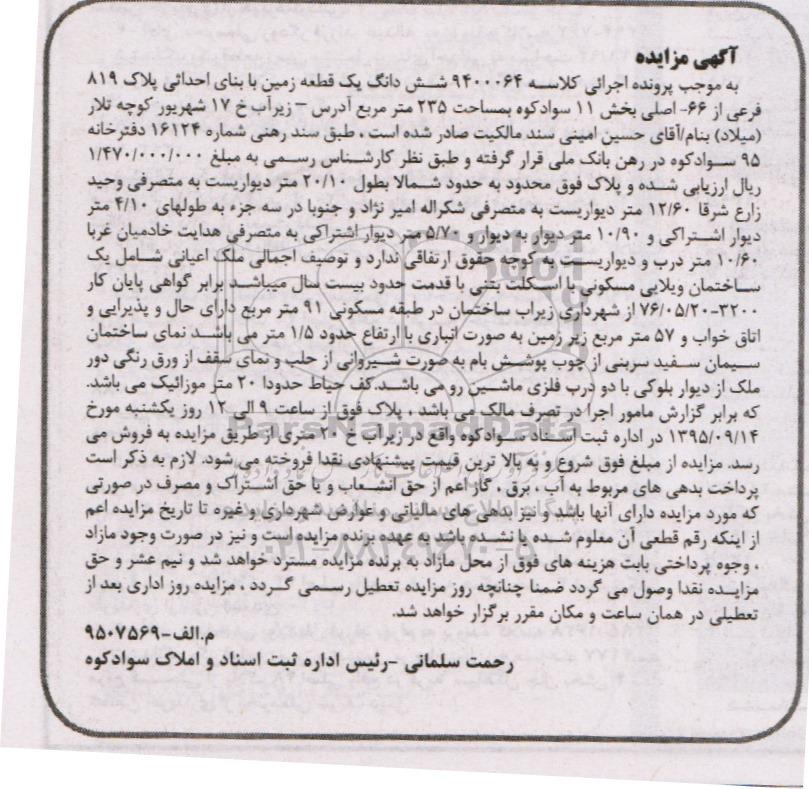 آگهی مزایده
به موجب پرونده اجرائی کلاسه ۹۴۰۰۰۶۴ شش دانگ یک قطعه زمین با بنای احداثی پلاک ۸۱۹
فرعی از ۶۶- اصلی بخش ۱۱ سوادکوه بمساحت ۲۳۵ متر مربع آدرس – زیرآب خ ۱۷ شهریور کوچه تلار
(میلاد) بنام/آقای حسین امینی سند مالکیت صادر شده است ، طبق سند رهنی شماره ۱۶۱۲۴ دفترخانه
۹۵ سوادکوه در رهن بانک ملی قرار گرفته و طبق نظر کارشناس رسمی به مبلغ ۱/۴۷۰/۰۰۰/۰۰۰
ریال ارزیابی شده و پلاک فوق محدود به حدود شمالا بطول ۲۰/۱۰ متر دیواریست به متصرفی وحید
زارع شرقا ۱۲/۶۰ متر دیواریست به متصرفی شکراله امیر نژاد و جنوبا در سه جزء به طولهای ۴/۱۰ متر
دیوار اشتراکی و ۱۰/۹۰ متر دیوار به دیوار و ۵/۷۰ متر دیوار اشتراکی به متصرفی هدایت خادمیان غربا
۱۰/۶۰ متر درب و دیواریست به کوچه حقوق ارتفاقی ندارد و توصیف اجمالی ملک اعیانی شامل یک
ساختمان ویلایی مسکونی با اسکلت بتنی با قدمت حدود بیست سال میباشد برابر گواهی پایان کار
۳۲۰۰-۷۶/۰۵/۲۰ از شهرداری زیراب ساختمان در طبقه مسکونی ۹۱ متر مربع دارای حال و پذیرایی و
اتاق خواب و ۵۷ متر مربع زیر زمین به صورت انباری با ارتفاع حدود ۱/۵ متر می باشد نمای ساختمان
سیمان سفید سربنی از چوب پوشش بام به صورت شیروانی از حلب و نمای سقف از ورق رنگی دور
ملک از دیوار بلوکی با دو درب فلزی ماشین رو می باشد.کف حیاط حدودا ۲۰ متر موزائیک می باشد.
که برابر گزارش مامور اجرا در تصرف مالک می باشد ، پلاک فوق از ساعت ۹ الی ۱۲ روز یکشنبه مورخ
۱۳۹۵/۰۹/۱۴ در اداره ثبت اسناد سوادکوه واقع در زیراب خ ۲۰ متری از طریق مزایده به فروش می
رسد. مزایده از مبلغ فوق شروع و به بالا ترین قیمت پیشنهادی نقدا فروخته می شود. لازم به ذکر است
پرداخت بدهی های مربوط به آب ، برق ، گاز اعم از حق انشعاب و یا حق اشتراک و مصرف در صورتی
که مورد مزایده دارای آنها باشد و نیز بدهی های مالیاتی و عوارض شهرداری و غیره تا تاریخ مزایده اعم
از اینکه رقم قطعی آن معلوم شده یا نشده باشد به عهده برنده مزایده است و نیز در صورت وجود مازاد
، وجوه پرداختی بابت هزینه های فوق از محل مازاد به برنده مزایده مسترد خواهد شد و نیم عشر و حق
مزایده نقدا وصول می گردد ضمنا چنانچه روز مزایده تعطیل رسمی گردد ، مزایده روز اداری بعد از
تعطیلی در همان ساعت و مکان مقرر برگزار خواهد شد.
م.الف-۹۵۰۷۵۶۹
رحمت سلمانی -رئیس اداره ثبت اسناد و املاک سوادکوه
ParsNamadData
۰۲۱-۸۸۳۴۹۶۷۰-۵